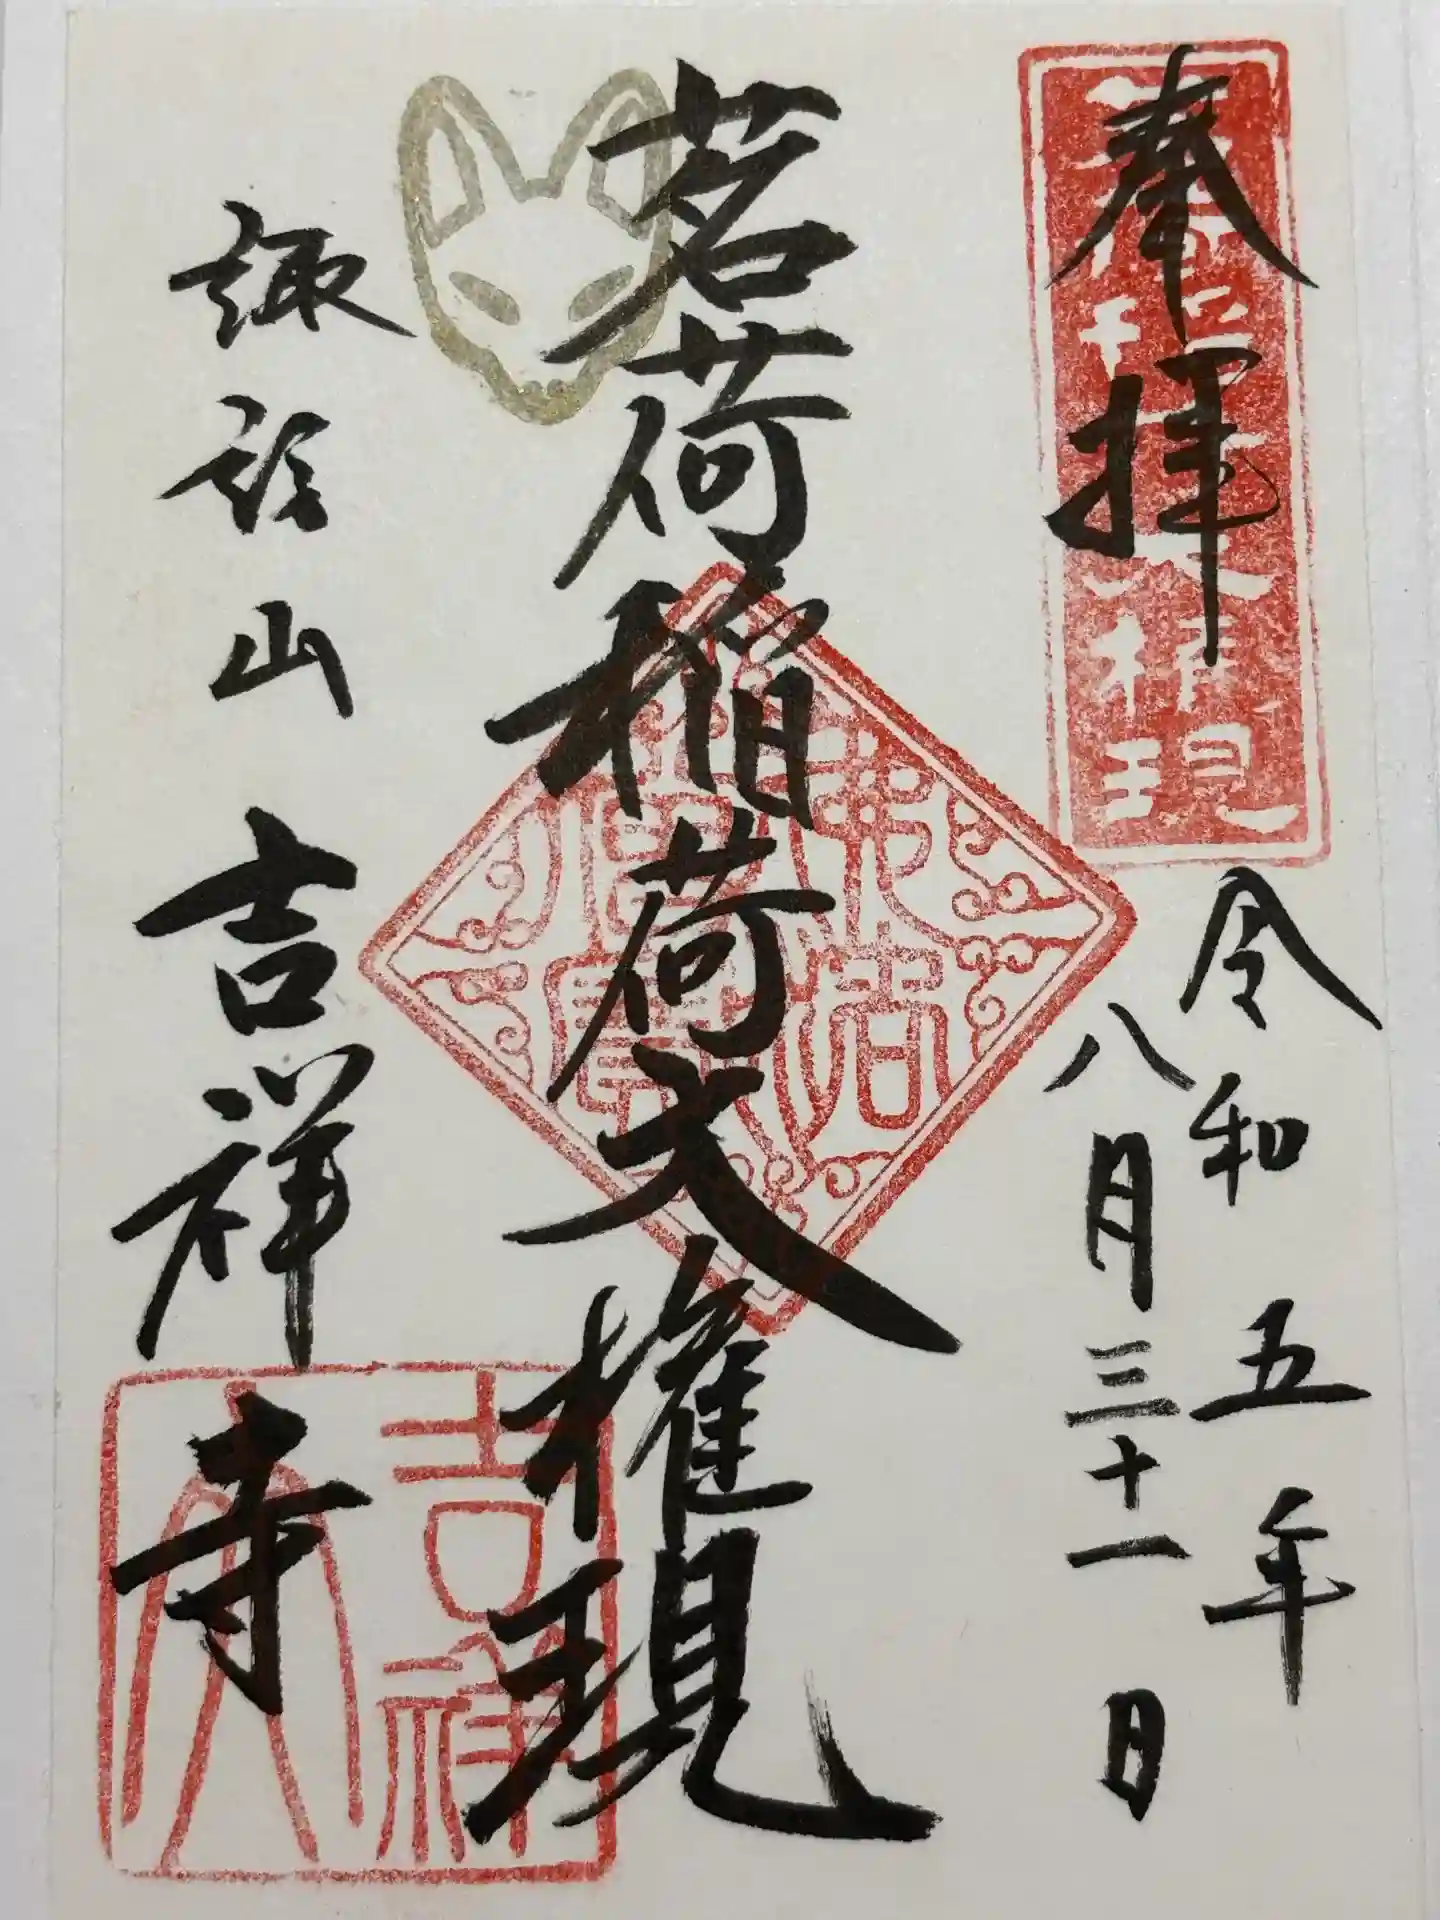 奉拝
令和五年
八月三十一日
茗荷稲荷大権現
諏訪山 吉祥寺